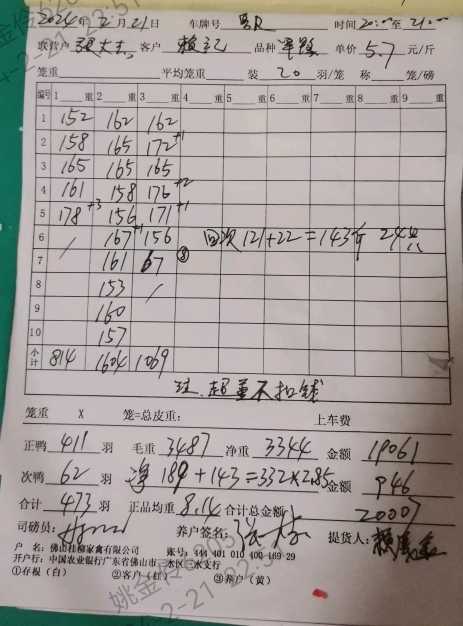 2024年2月21日 车牌号 时间20:00至21:00
联营户 张大杰 客户 赖主记 品种 单价5.7元/斤
笼重 平均笼重 装20羽/笼 称 笼/磅
编号 1 重 2 重 3 重 4 重 5 重 6 重 7 重 8 重 9 重
1 152 162 162
2 158 165 172+1
3 165 165 165
4 161 158 176+2
5 178+3 156 171+1
6 / 167+1 156 回次121+22=143斤 24只
7 161 67 ⑧
8 153 /
9 160
10 157
小计 814 1604 1069
注.超重不扣钱
笼重 X 笼=总皮重: 上车费
正鸭411羽 毛重3487 净重3344 金额19061
次鸭62羽 净189+143=332×2.85 金额946
合计473羽 正品均重8.14 合计总金额20007
司磅员: 养户签名: 提货人:
户 名:佛山桂柳家禽有限公司 账号:444 401 010 400 469 29
开户行:中国农业银行广东省佛山市 水区 水支行
①存根(白) ②客户(红) ③养户(黄)